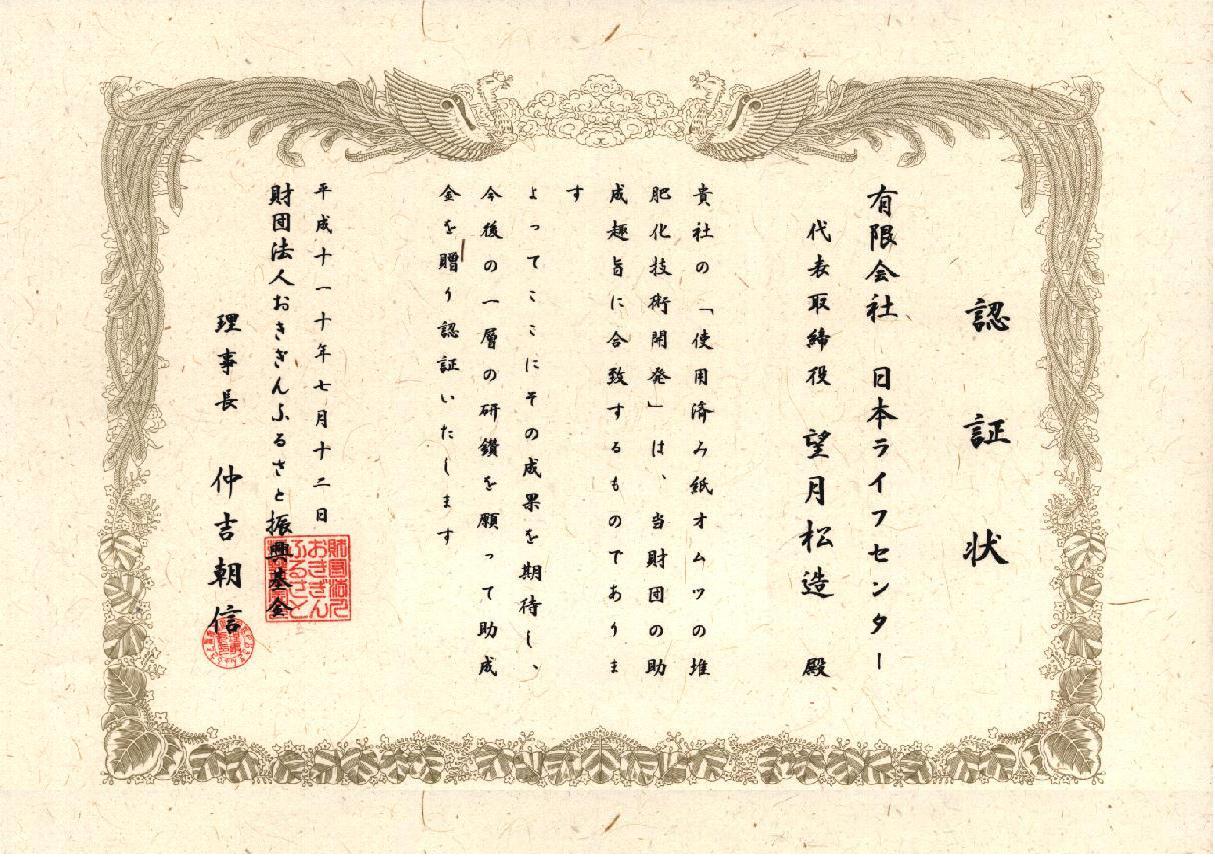 認証状
有限会社 日本ライフセンター
代表取締役 望月松造 殿
貴社の「使用済み紙オムツの堆
肥化技術開発」は、当財団の助
成趣旨に合致するものでありま
す
よってここにその成果を期待し、
今後の一層の研鑽を願って助成
金を贈り認証いたします
平成十一十年七月十二日
財団法人おきぎんふるさと振興基金
理事長 仲吉朝信
財団法人
おきぎん
ふるさと
振興基金